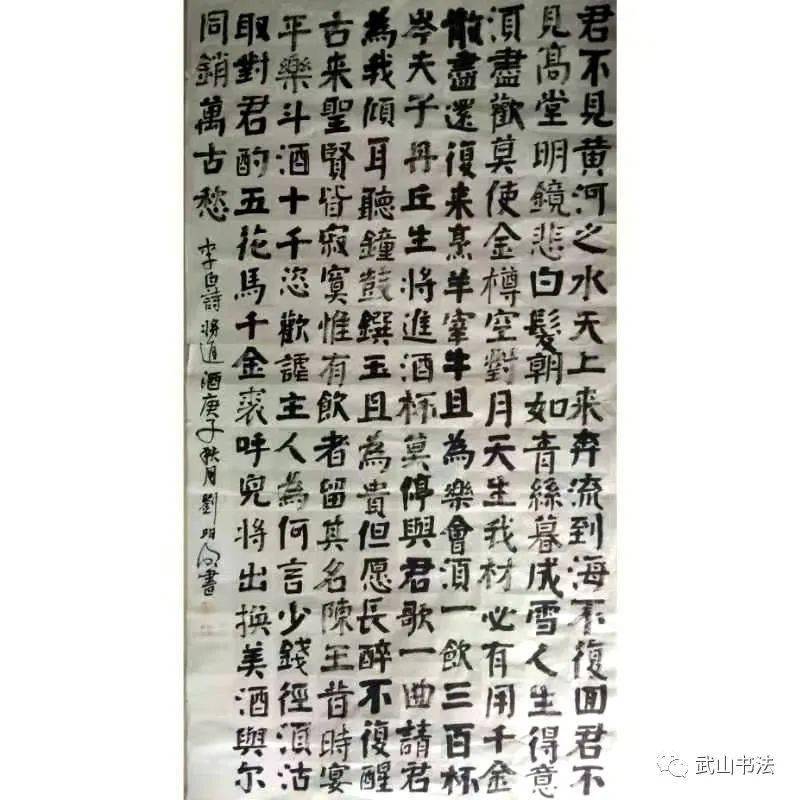 君不見黄河之水天上来奔流到海不復回君不
見高堂明鏡悲白髮朝如青絲暮成雪人生得意
須盡歡莫使金樽空對月天生我材必有用千金
散盡還復来烹羊宰牛且為樂會須一飲三百杯
岑夫子丹丘生將進酒杯莫停與君歌一曲請君
為我傾耳聽鐘鼓饌玉且為貴但愿長醉不復醒
古来聖賢皆寂寞惟有飲者留其名陳王昔時宴
平樂斗酒十千恣歡謔主人為何言少錢徑須沽
取對君酌五花馬千金裘呼兒將出換美酒與尔
同銷萬古愁
李白詩將進酒庚子秋月劉明書
武山书法